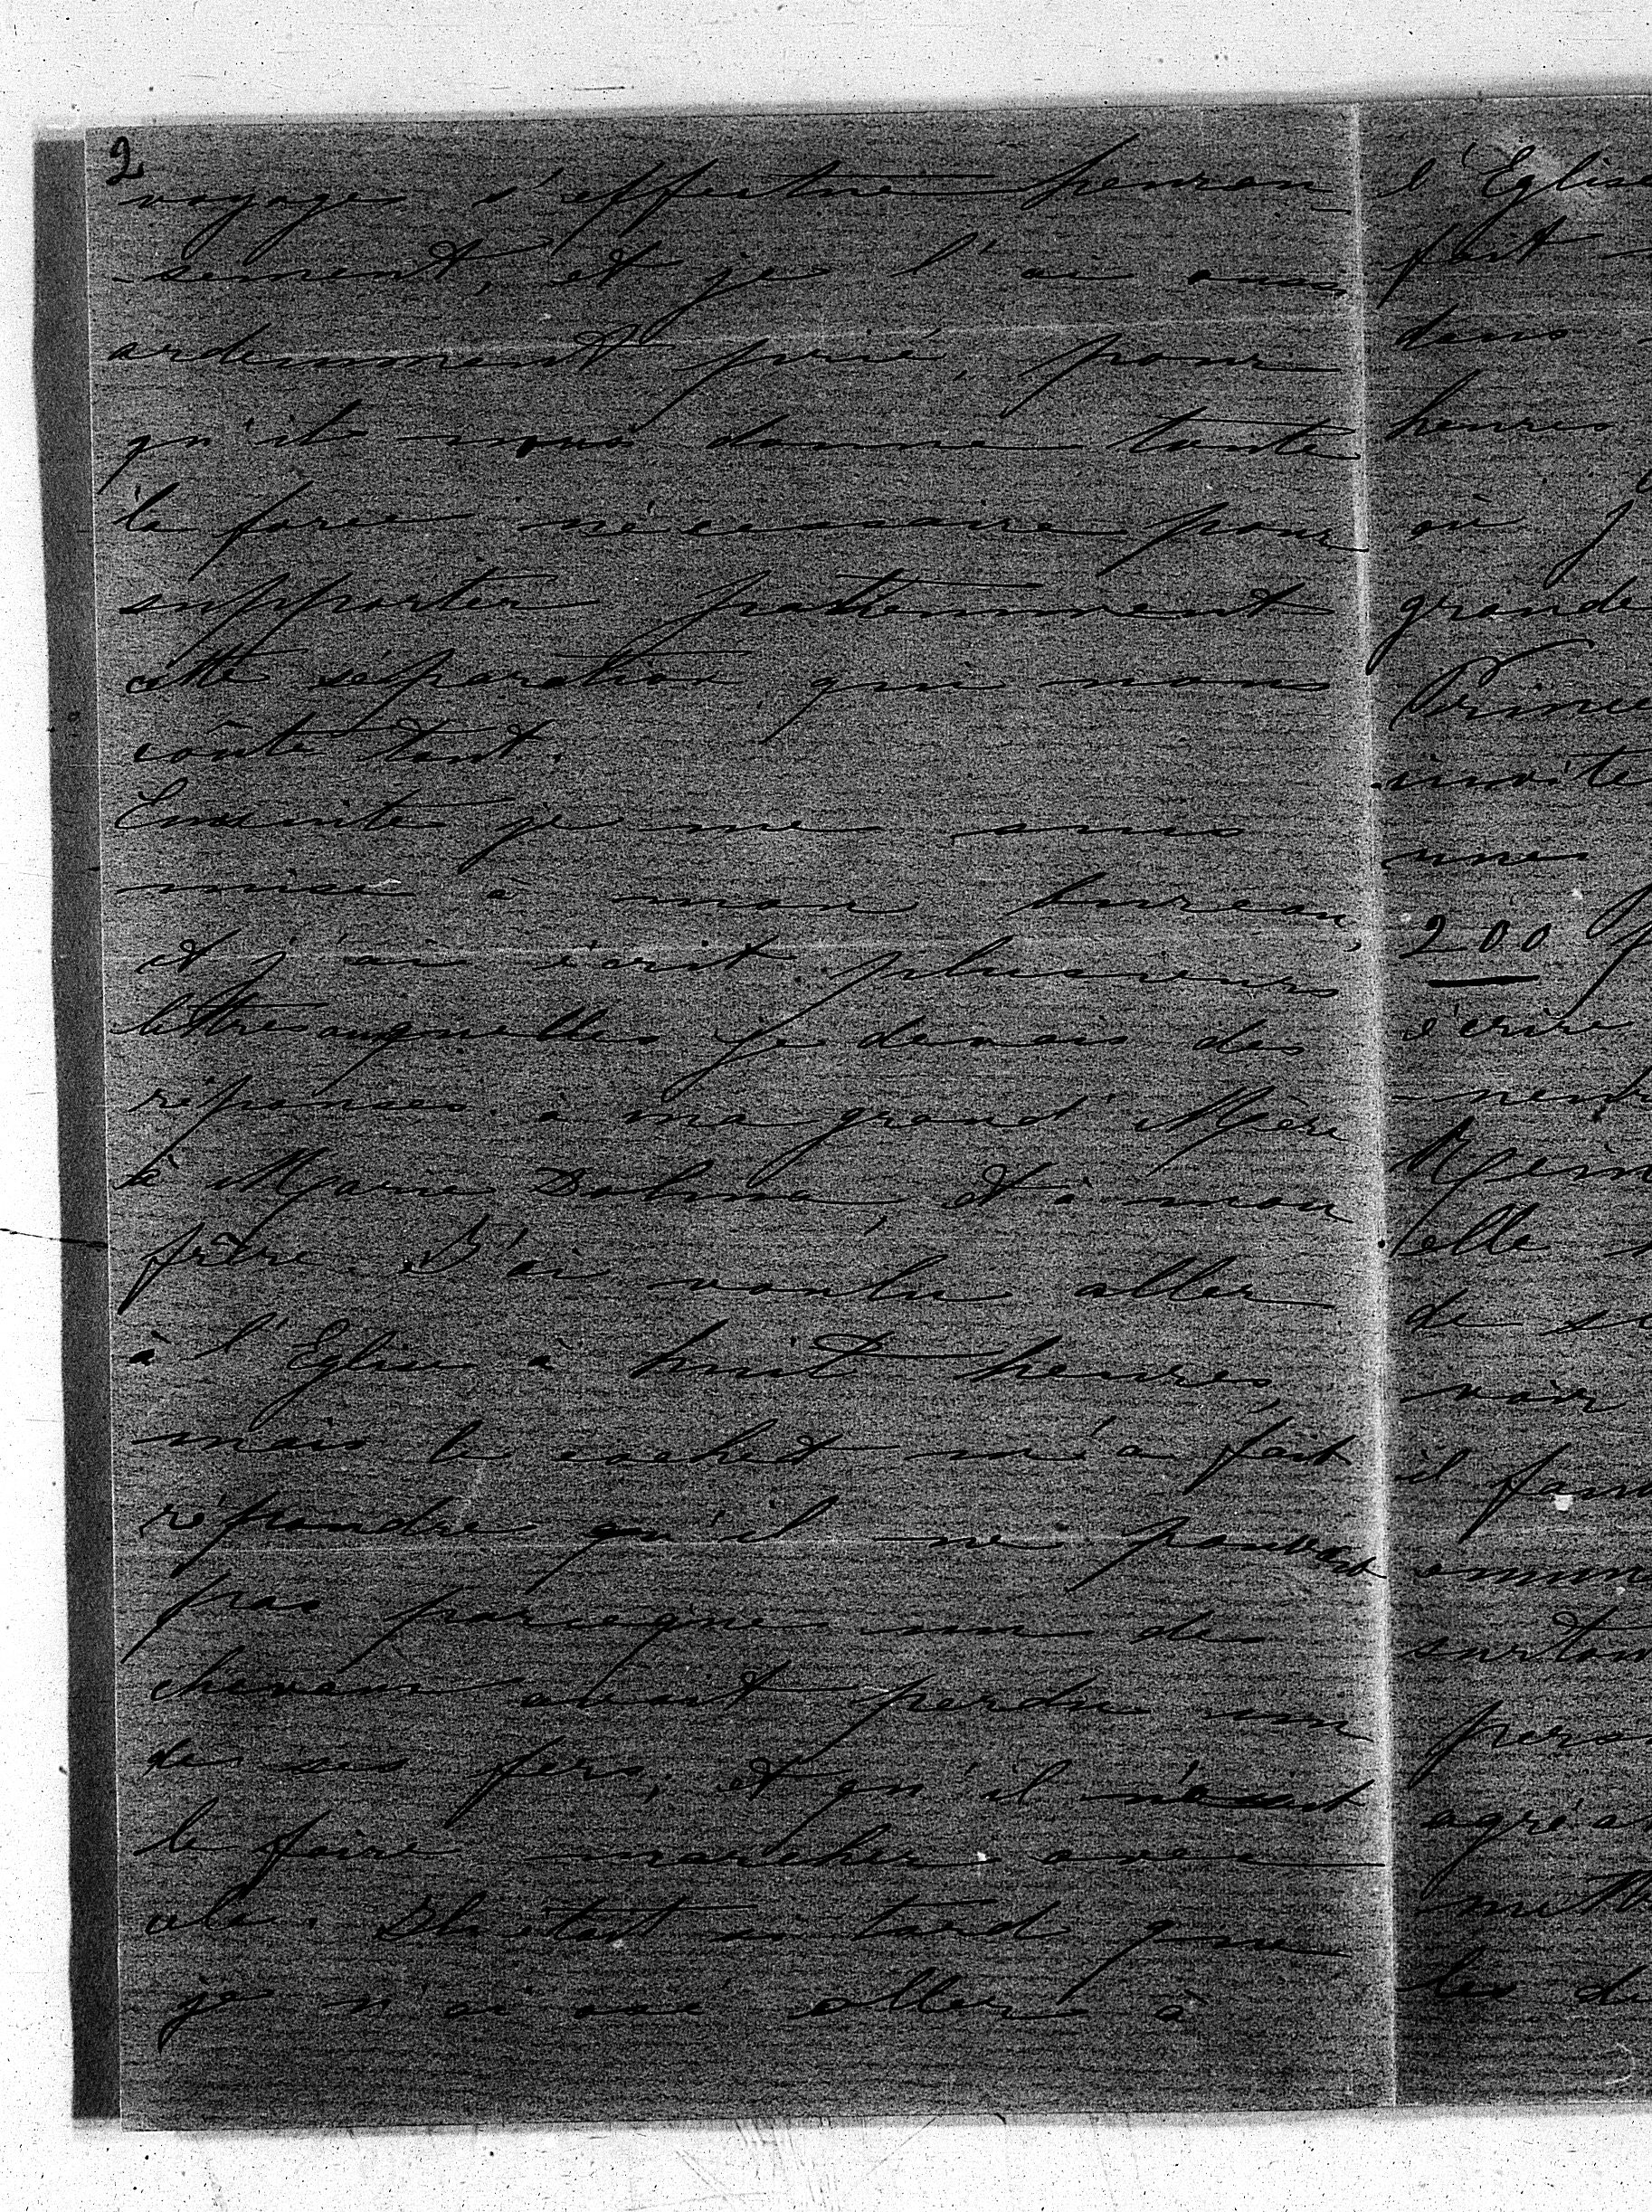 2
voyage s'effectue heureu-
-sement, et je l'ai aussi
ardemment prié, pour
qu'il nous donne toute
la force nécessaire pour
supporter patiemment
cette séparation qui nous
coûte tant.
Ensuite je me suis
mise à mon bureau,
et j'ai écrit plusieurs
lettres auxquelles je devais des
réponses à ma grand'Mère
à Marie Dolma, et à mon
frère. J'ai voulu aller
à l'Eglise à huit heures,
mais le cochet m'a fait
répondre qu'il ne pouvait
pas parceque un de
chevaux avait perdu un
de ses fers, et qu'il n'osait
le faire marcher avec
cela. Il était si tard que
je n'ai osé aller à
l'Eglise
fait
dans
heures
où
grande
Prince
invite
une
200
écrire
elle
de
voir
il
surtout
les